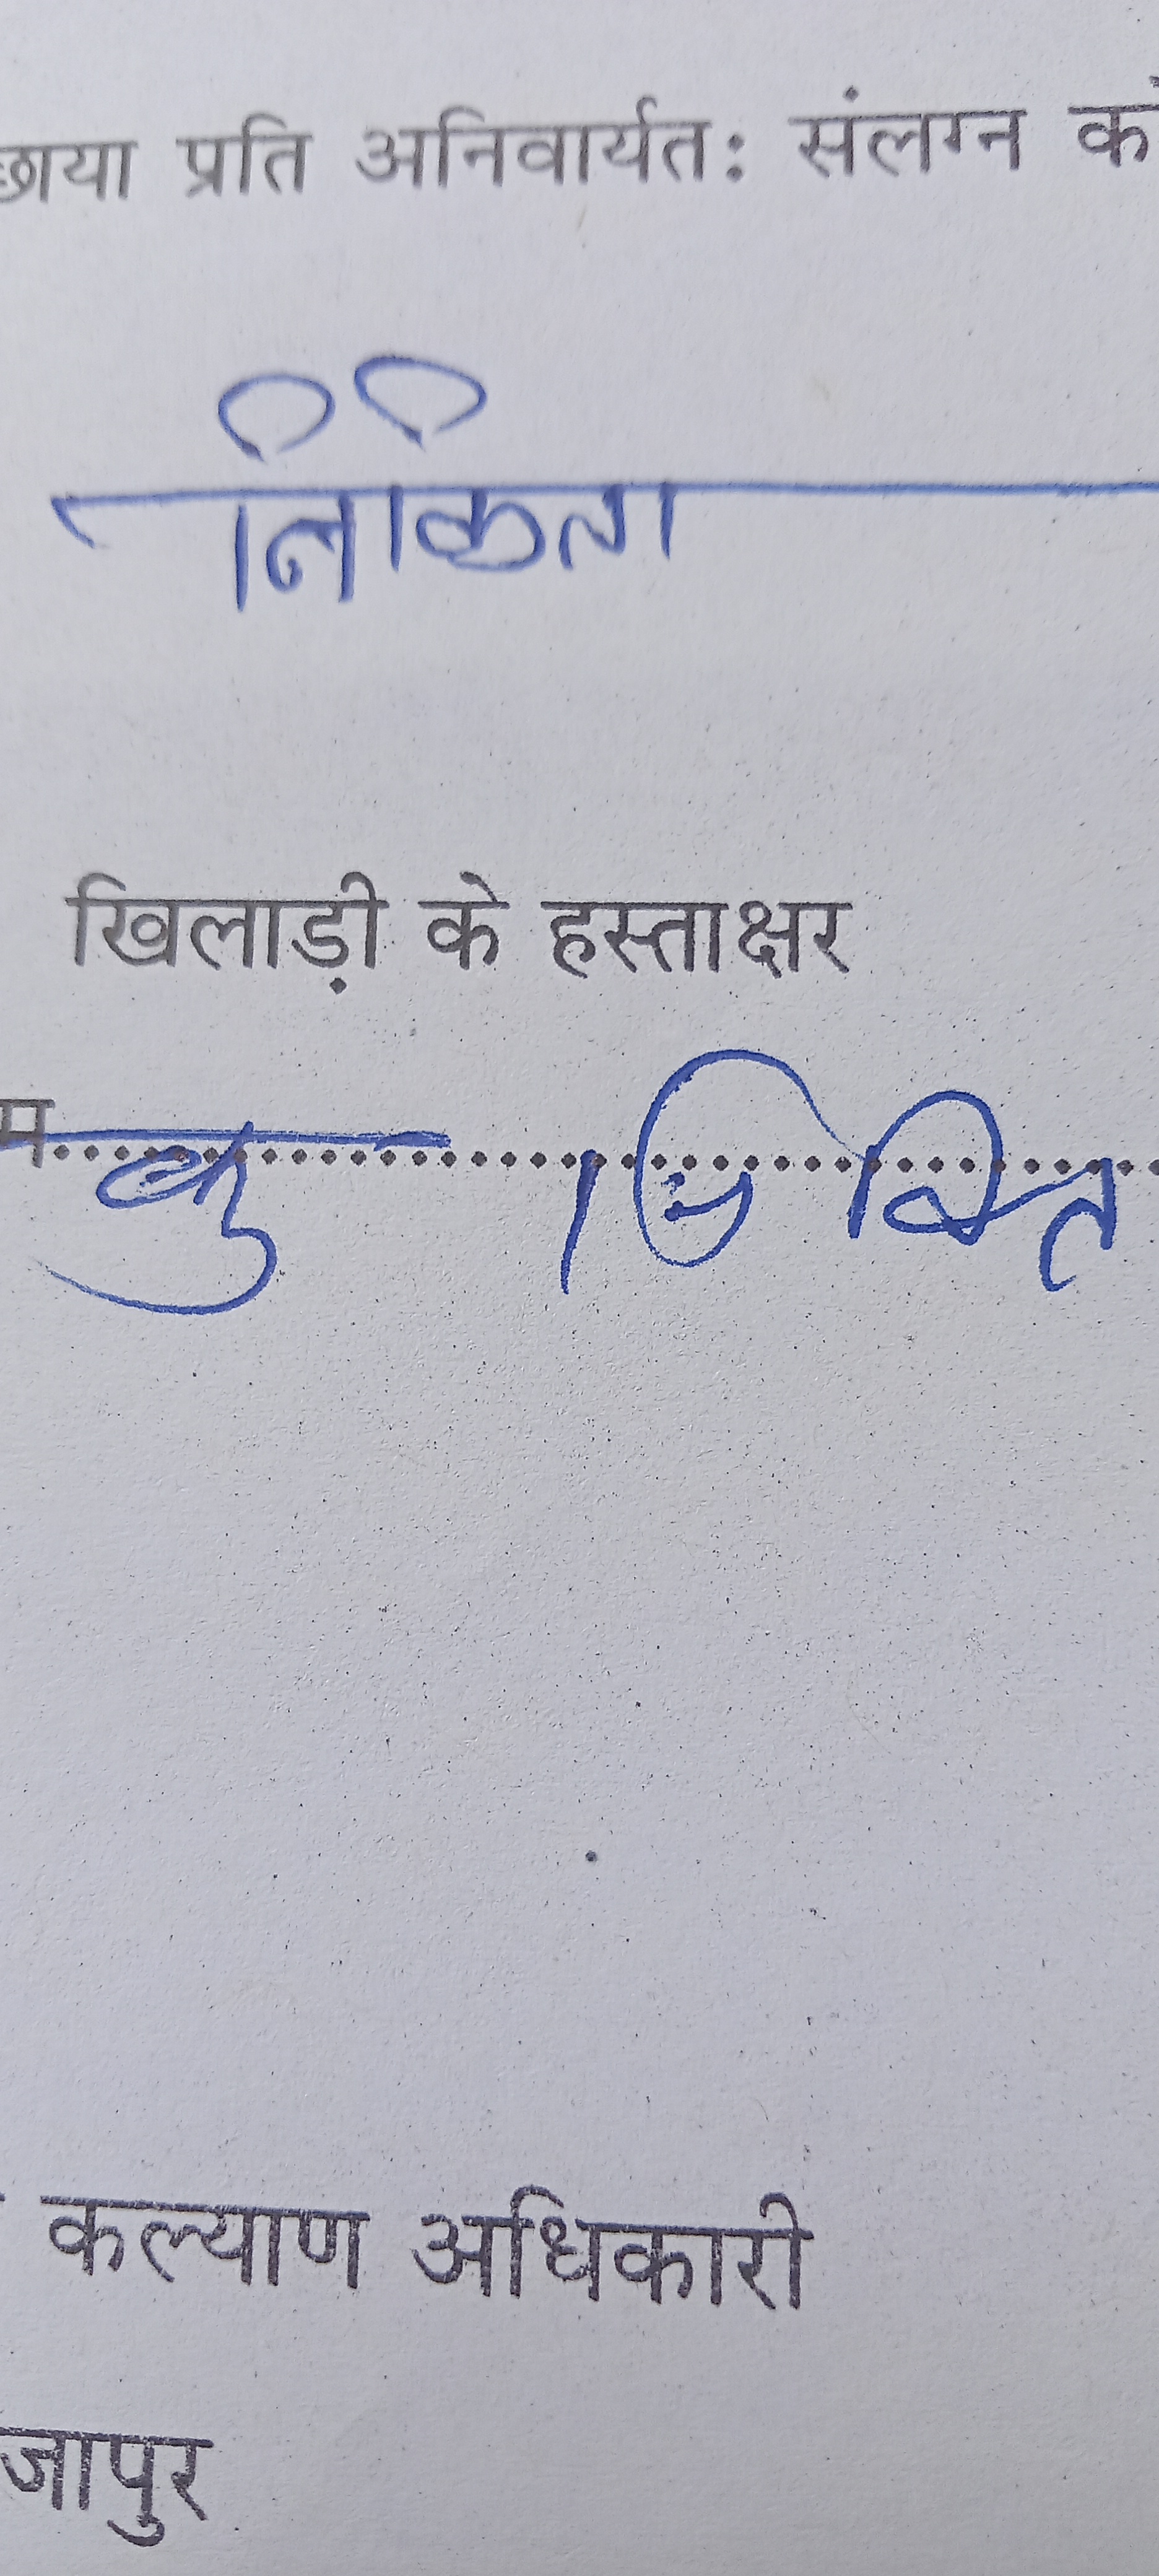 छाया प्रति अनिवार्यतः संलग्न क
निकिता
खिलाड़ी के हस्ताक्षर
म.......... कु
कल्याण अधिकारी
जापुर